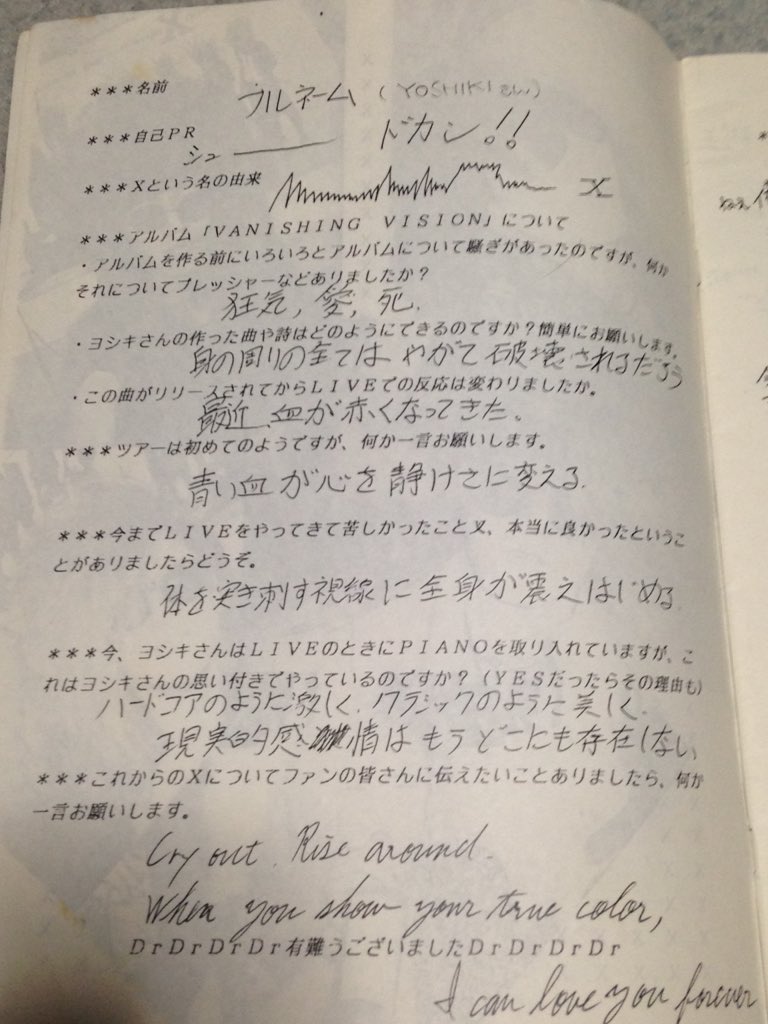 ***名前
フルネーム (YOSHIKIさん)
***自己PR
シュ―――― ドカン!!
***Xという名の由来
X
***アルバム「VANISHING VISION」について
・アルバムを作る前にいろいろとアルバムについて騒ぎがあったのですが、何か
それについてプレッシャーなどありましたか?
狂気, 愛, 死.
・ヨシキさんの作った曲や詩はどのようにできるのですか?簡単にお願いします。
身の周りの全ては やがて 破壊されるだろう
・この曲がリリースされてからLIVEでの反応は変わりましたか。
最近、血が赤くなってきた。
***ツアーは初めてのようですが、何か一言お願いします。
青い血が心を静けさに変える.
***今までLIVEをやってきて苦しかったこと又、本当に良かったというこ
とがありましたらどうぞ。
体を突き刺す視線に全身が震えはじめる.
***今、ヨシキさんはLIVEのときにPIANOを取り入れていますが、こ
れはヨシキさんの思い付きでやっているのですか?(YESだったらその理由も)
ハードコアのように激しく. クラシックのように美しく.
現実的感情はもうどこにも存在しない
***これからのXについてファンの皆さんに伝えたいことありましたら、何か
一言お願いします。
Cry out. Rise around.
When you show your true color,
DrDrDrDr有難うございましたDrDrDrDr
I can love you forever